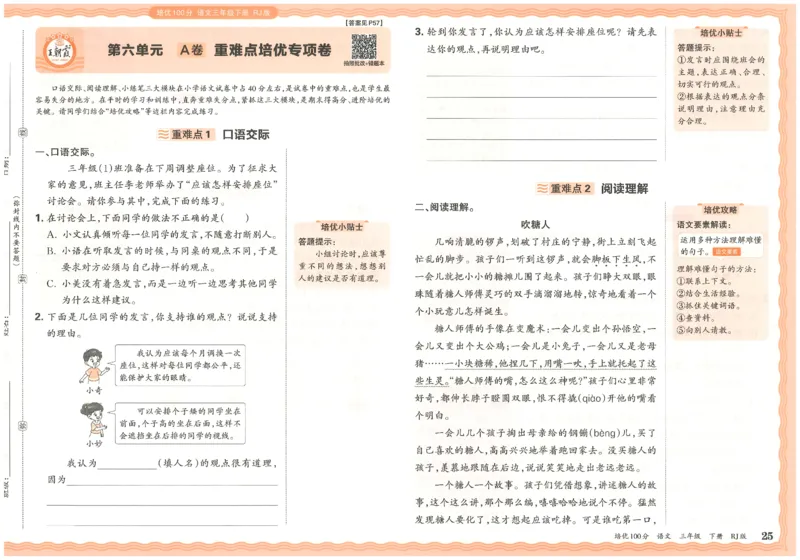 培优100分 语文三年级下册·RJ版
【答案见P57】
王朝霞
第六单元 A卷 重难点培优专项卷
拍照批改+错题本
口语交际、阅读理解、小练笔三大模块在小学语文试卷中占40分左右,是试卷中的重难点,也是学生最
容易失分的地方。在平时的学习和训练中,直奔重难失分点,紧抓这三大模块,是期末得高分、进阶培优的
关键。请同学们结合“培优攻略”等边栏内容完成练习。
重难点1 口语交际
一、口语交际。
三年级(1)班准备在下周调整座位。为了征求大
家的意见,班主任李老师举办了“应该怎样安排座位”
讨论会。请你参与其中,完成下面的练习。
1. 在讨论会上,下面同学的做法不正确的是( )
A. 小文认真倾听每一位同学的发言,不随意打断别人。
B. 小语在听取发言的时候,与同桌的观点不同,于是
要求对方必须与自己持一样的观点。
C. 小美没有着急发言,而是一边听一边思考其他同学
为什么这样建议。
2. 下面是几位同学的发言,你支持谁的观点?说说支持
的理由。
我认为应该每个月调换一次
座位,这样对每位同学都公平,还
能保护大家的眼睛。
小奇
可以安排个子矮的同学坐在
前面,个子高的坐在后面,这样不
会遮挡坐在后排的同学的视线。
小妙
我认为 (填人名)的观点很有道理,
因为
培优小贴士
答题提示:
小组讨论时,应该尊
重不同的想法,想想别
人的建议是否有道理。
(弥封线内不要答题)
3. 轮到你发言了,你认为应该怎样安排座位呢?请先表
达你的观点,再说明理由吧。
培优小贴士
答题提示:
①发言时应围绕班会的
主题,表达正确、合理、
切实可行的观点。
②根据表达的观点分条
说明理由,注意理由充
分合理。
重难点2 阅读理解
二、阅读理解。
吹糖人
几响清脆的锣声,划破了村庄的宁静,街上立刻飞起
忙乱的脚步。孩子们一听到这锣声,就会脚板下生风,不
一会儿就把小小的糖摊儿围了起来。孩子们睁大双眼,眼
珠随着糖人师傅灵巧的双手滴溜溜地转,惊奇地看着一个
个小玩意儿怎样诞生。
糖人师傅的手像在变魔术:一会儿变出个孙悟空,一
会儿又变出个大公鸡;一会儿是小兔子,一会儿又是老母
猪……一小块糖稀,他捏几下,用嘴一吹,手上就托起了这
些生灵。“糖人师傅的嘴,怎么这么神呢?”孩子们心里非常
好奇,都伸长脖子瞪圆双眼,恨不得撬(qiào)开他的嘴看
个明白。
一会儿几个孩子掏出母亲给的钢镚(bèng)儿,买了
自己喜欢的糖人,高高兴兴地举着跑回家去。没买糖人的
孩子,羡慕地跟随在后边,说说笑笑地走出老远老远。
一个糖人一个故事。孩子们凭借想象,讲述糖人的故
事,这个这么讲,那个那么编,嘻嘻哈哈地说个不停。猛然
发现糖人要化了,这才想起应该吃掉。可是谁吃第一口,
培优攻略
语文要素解读:
运用多种方法理解难懂
的句子。语文要素
理解难懂句子的方法:
①联系上下文。
②结合生活经验。
③抓住关键词语。
④查资料。
⑤向别人请教。
培优100分 语文 三年级 下册 RJ版 25